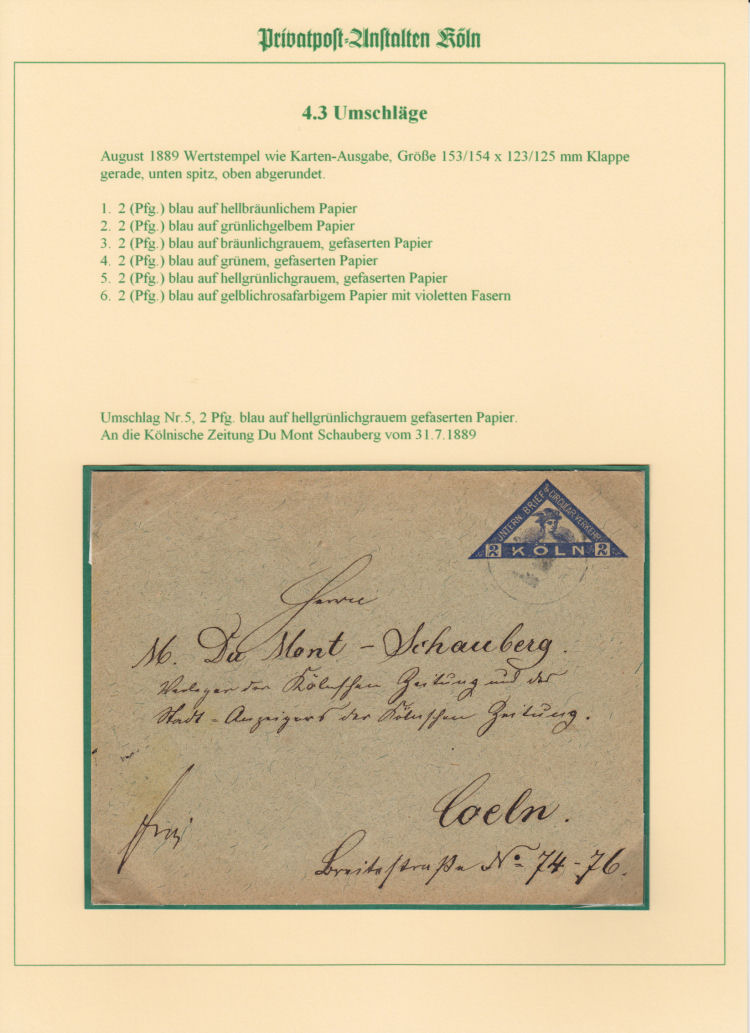 Privatpost-Anstalten Köln
4.3 Umschläge
August 1889 Wertstempel wie Karten-Ausgabe, Größe 153/154 x 123/125 mm Klappe
gerade, unten spitz, oben abgerundet.
1. 2 (Pfg.) blau auf hellbräunlichem Papier
2. 2 (Pfg.) blau auf grünlichgelbem Papier
3. 2 (Pfg.) blau auf bräunlichgrauem, gefaserten Papier
4. 2 (Pfg.) blau auf grünem, gefaserten Papier
5. 2 (Pfg.) blau auf hellgrünlichgrauem, gefaserten Papier
6. 2 (Pfg.) blau auf gelblichrosafarbigem Papier mit violetten Fasern
Umschlag Nr.5, 2 Pfg. blau auf hellgrünlichgrauem gefaserten Papier.
An die Kölnische Zeitung Du Mont Schauberg vom 31.7.1889
INTERN. BRIEF & CIRCULAR-VERKEHR
2 KÖLN 2
Herrn
M. Du Mont - Schauberg.
Verleger der Kölnischen Zeitung und des
Stadt-Anzeigers der Kölnischen Zeitung.
Coeln.
frei
Breitestraße No. 74-76.